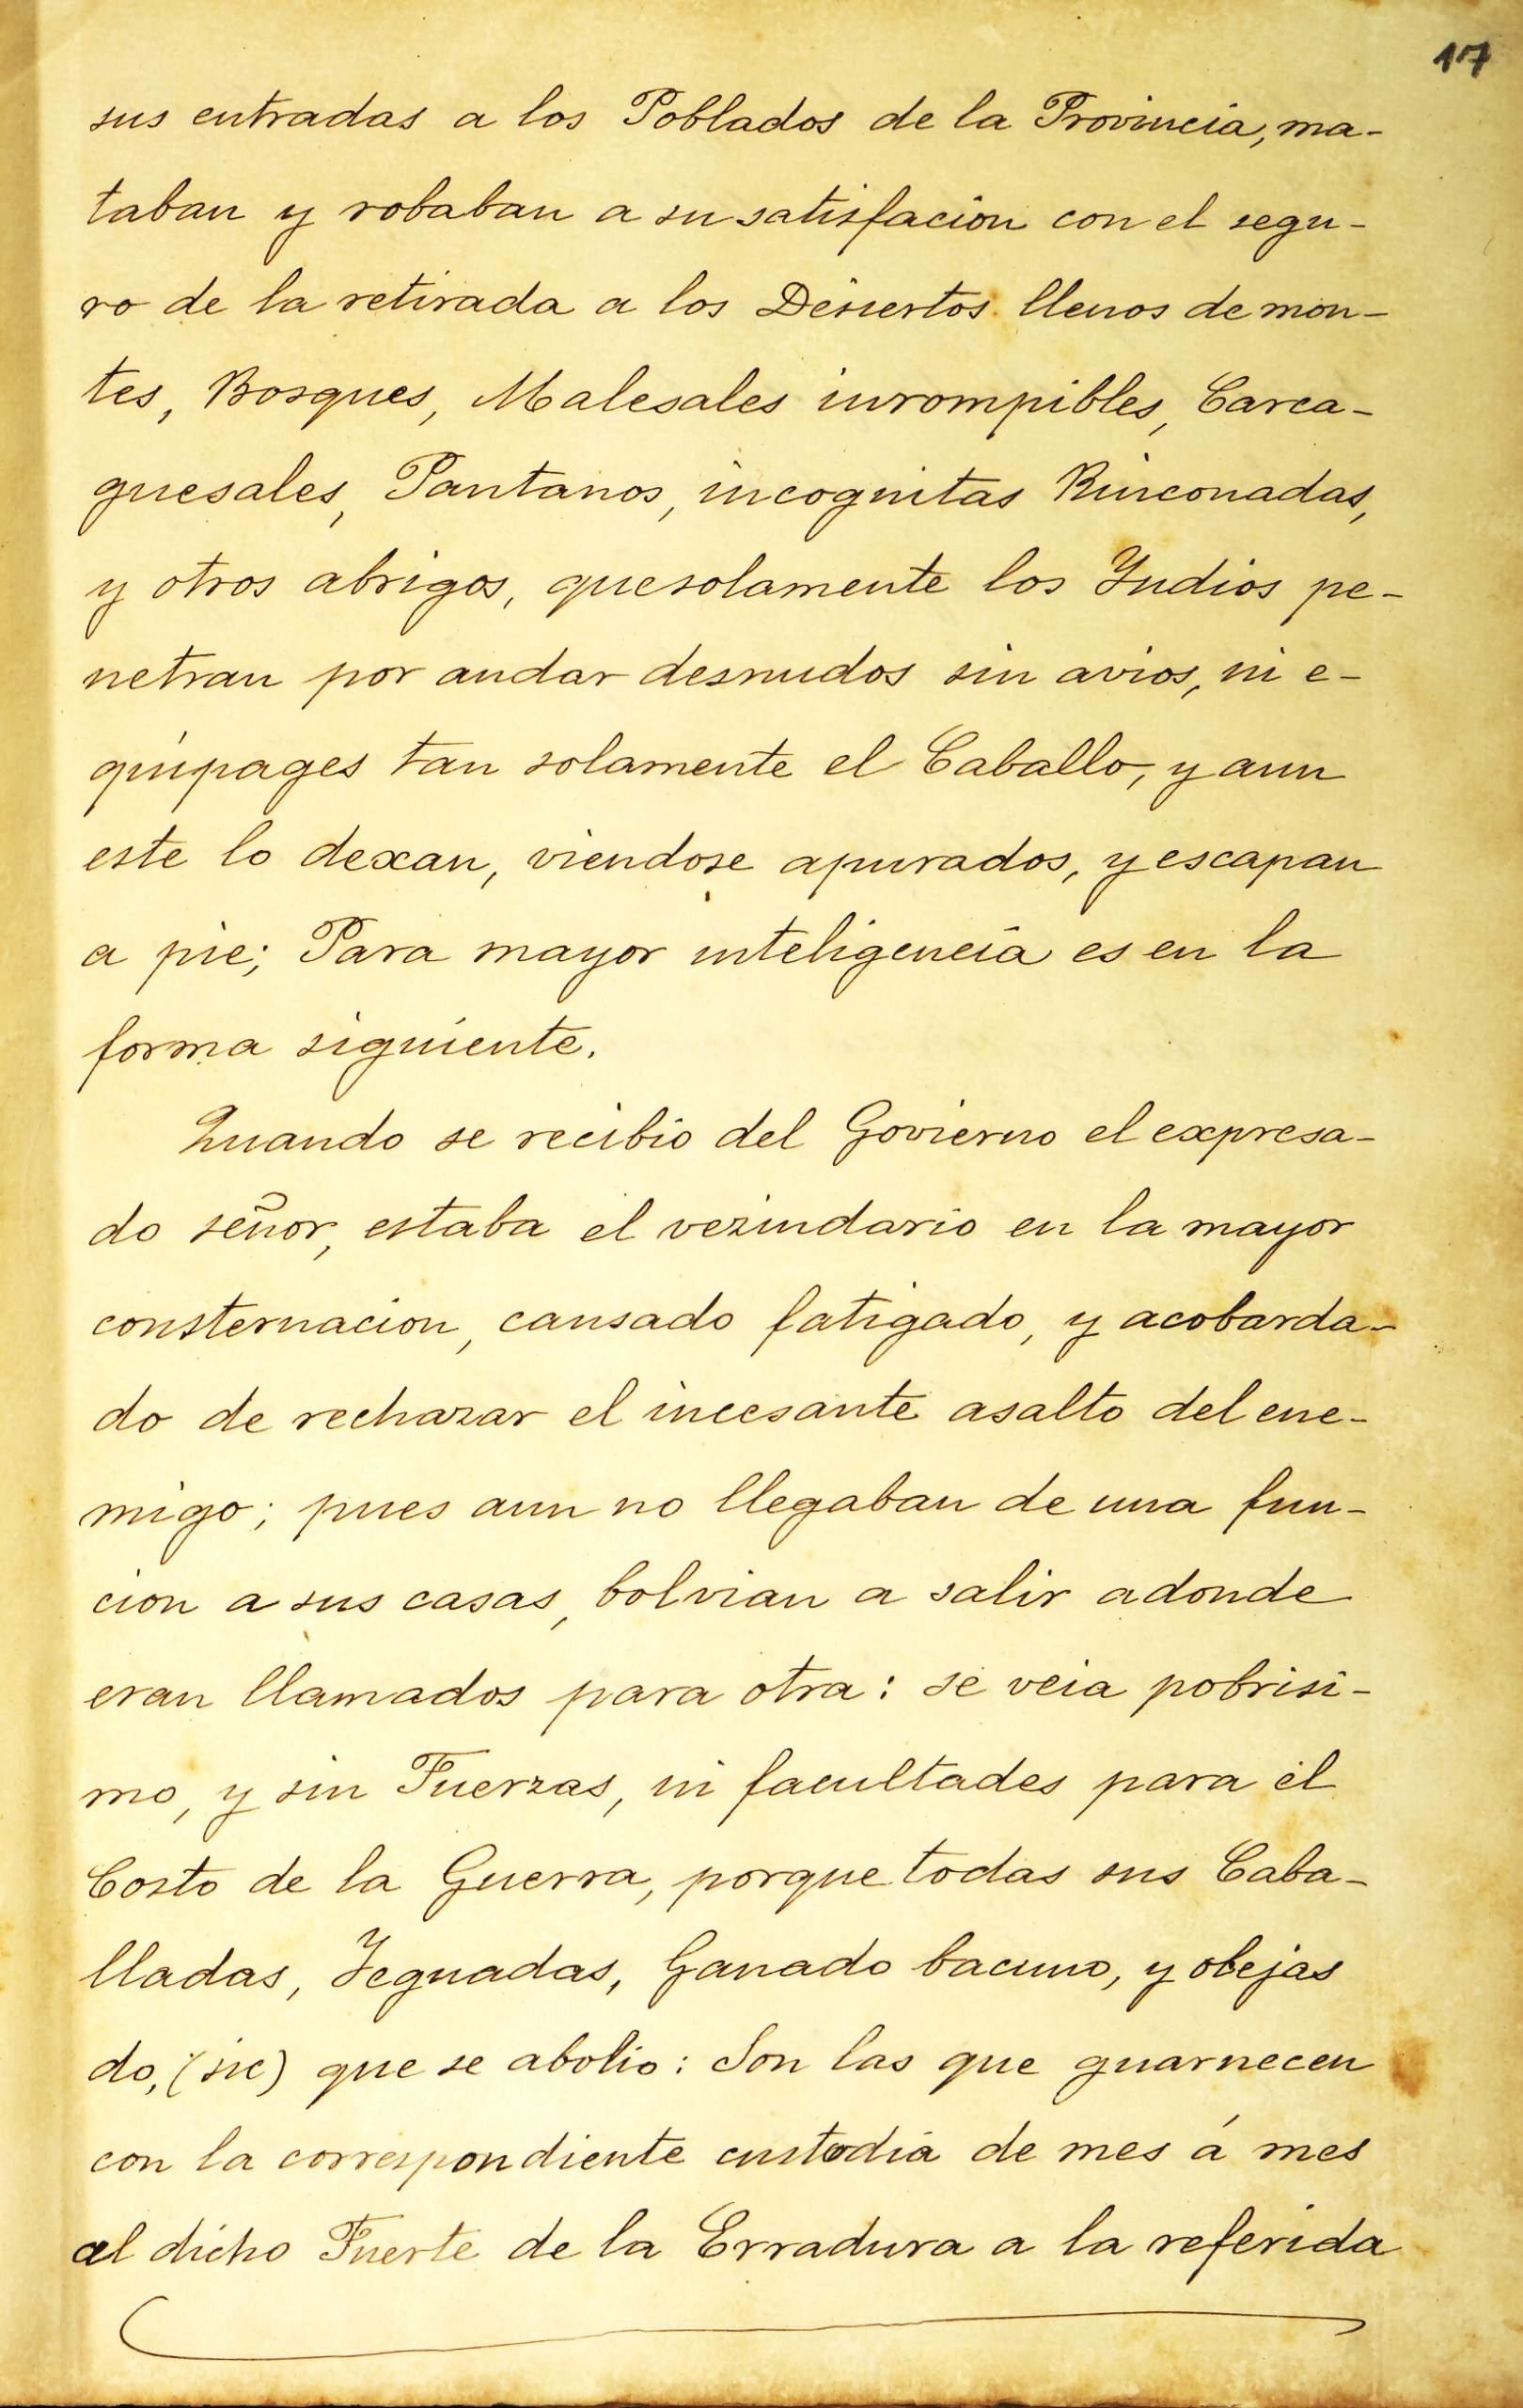 17
sus entradas a los Poblados de la Provincia, ma-
taban y robaban a su satisfacion con el segu-
ro de la retirada a los Desiertos llenos de mon-
tes, Bosques, Malesales inrompibles, Carca-
guesales, Pantanos, incognitas Rinconadas,
y otros abrigos, que solamente los Yndios pe-
netran por andar desnudos sin avios, ni e-
quipages tan solamente el Caballo, y aun
este lo dexan, viendose apurados, y escapan
a pie; Para mayor inteligencia es en la
forma siguiente.
Quando se recibio del Govierno el expresa-
do señor, estaba el vezindario en la mayor
consternacion, cansado fatigado, y acobarda-
do de rechazar el incesante asalto del ene-
migo; pues aun no llegaban de una fun-
cion a sus casas, bolvian a salir adonde
eran llamados para otra: se veia pobrisi-
mo, y sin Fuerzas, ni facultades para el
Costo de la Guerra, porque todas sus Caba-
lladas, Yeguadas, Ganado bacuno, y obejas
do, (sic) que se abolio: Son las que guarnecen
con la correspondiente custodia de mes á mes
al dicho Fuerte de la Erradura a la referida